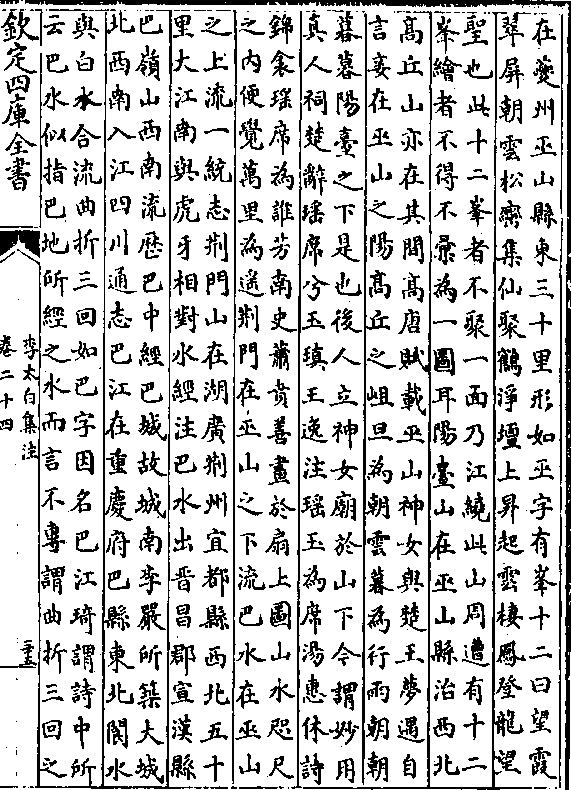 在夔州巫山縣東三十里形如巫字有峯十二曰望霞
翠屏朝雲松巒集仙聚鶴淨壇上昇起雲棲鳳登龍望
聖也此十二峯者不聚一面乃江繞此山周遭有十二
峯繪者不得不彙為一圖耳陽臺山在巫山縣治西北
高丘山亦在其間高唐賦載巫山神女與楚王夢遇自
言妾在巫山之陽高丘之岨旦為朝雲暮為行雨朝朝
暮暮陽臺之下是也後人立神女廟於山下今謂妙用
真人祠楚辭瑶席兮玉瑱王逸注瑶玉為席湯惠休詩
錦衾瑶席為誰芳南史蕭賁善畫於扇上圖山水咫尺
之内便覺萬里為遥荆門在巫山之下流巴水在巫山
之上流一統志荆門山在湖廣荆州宜都縣西北五十
里大江南與虎牙相對水經注巴水出晋昌郡宣漢縣
巴嶺山西南流歷巴中經巴城故城南李嚴所築大城
北西南入江四川通志巴江在重慶府巴縣東北閬水
與白水合流曲折三回如巴字因名巴江琦謂詩中所
云巴水似指巴地所經之水而言不專謂曲折三回之
欽定四庫全書
李太白集注
卷二十四